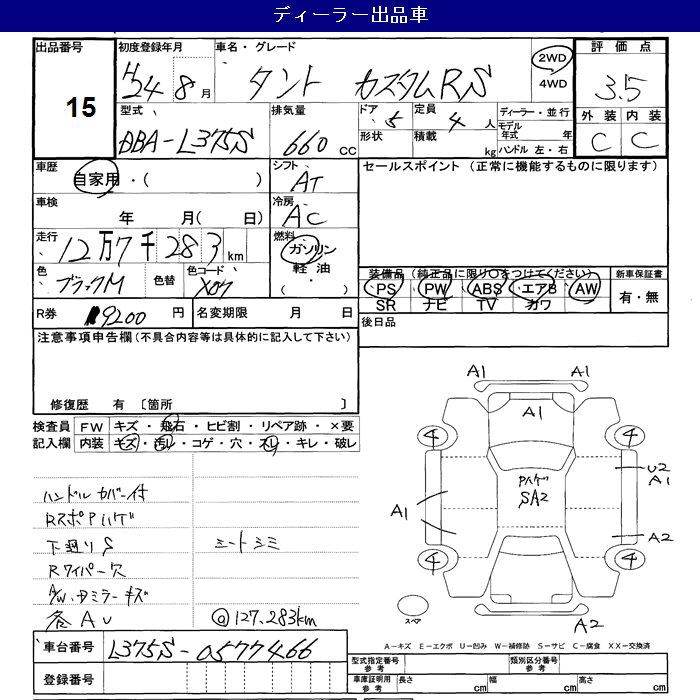 ディーラー出品車
出品番号 初度登録年月 車名・グレード 評価点
15
H24 8月 タント カスタムRS 2WD 4WD 3.5
型式 排気量 ドア 定員 ディーラー・並行 外装 内装
DBA-L375S 660 cc 5 4人 モデル年式 年 C C
形状 積載 kg ハンドル 左・右
車歴 シフト セールスポイント (正常に機能するものに限ります)
自家用・( ) AT
車検 冷房
年 月( 日) AC
走行 燃料
12万7千283km ガソリン
軽油
( ・ )
色 色替 色コード
ブラックM X07
装備品 (純正品に限り○をつけてください) 新車保証書
PS PW ABS エアB AW 有・無
SR ナビ TV カワ
R券 9200円 名変期限 月 日 後日品
注意事項申告欄(不具合内容等は具体的に記入して下さい)
修復歴 有 〔箇所 〕
検査員 FW キズ・飛石・ヒビ割・リペア跡・×要
記入欄 内装 キズ・汚レ・コゲ・穴・スレ・キレ・破レ
A1 A1
A1
4 4
U2
A1
PハゲSA2
A1
A2
4 4
スペア
A2
ハンドルカバー付
RスポPハゲ
下廻りS シートシミ
Rワイパー欠
A/W・ドミラーキズ
各AU @127,283km
A-キズ E-エクボ U-凹み W-補修跡 S-サビ C-腐食 XX-交換済
車台番号 L375S-0577466
型式指定番号 参考 類別区分番号 参考
登録番号
車庫証明用 参考 長さ cm 幅 cm 高さ cm